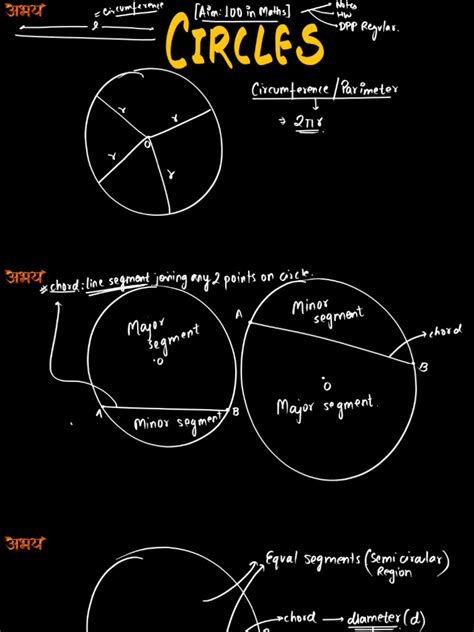 अभय
Circumference
[Aim: 100 in Maths]
Notes
HW
DPP Regular.
l
CIRCLES
Circumference/Parimeter
→ 2πr
r
r
O
r
r
अभय
* chord: line segment joining any 2 points on circle.
Major segment
O
A
B
Minor segment
Minor segment
A
chord
B
O
Major segment.
अभय
Equal segments (Semi ciralar) Region
chord → diameter (d)